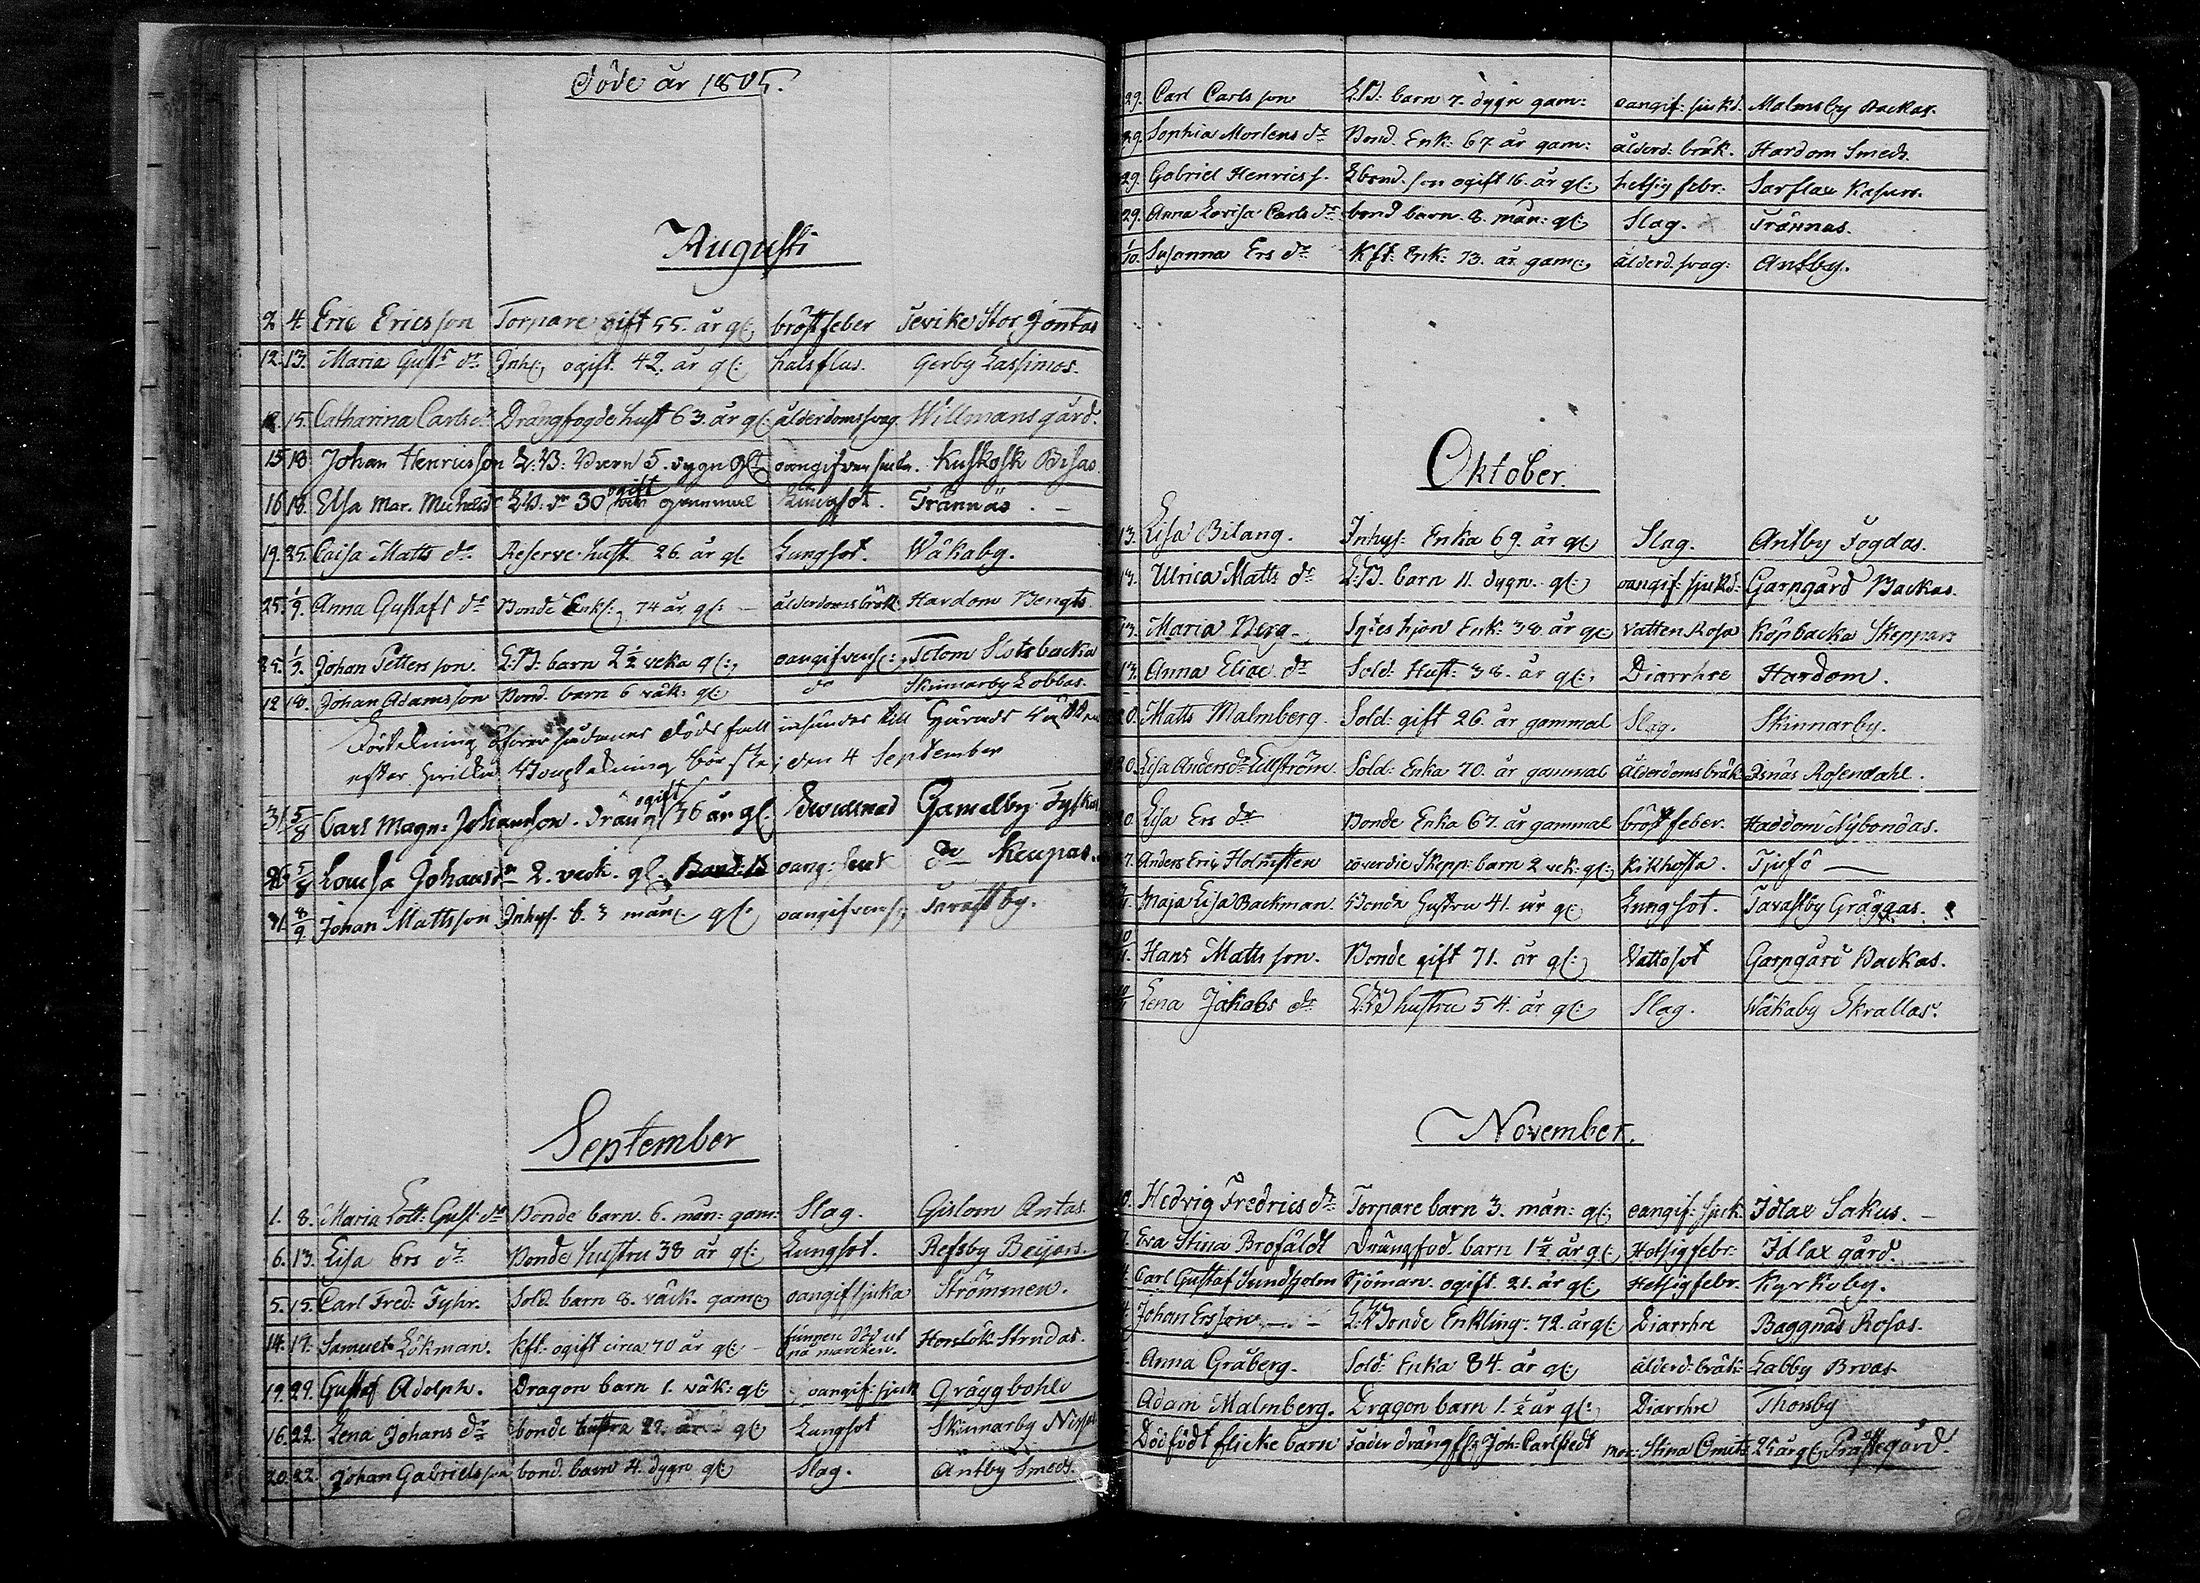 Döde år 1805.
Augusti
2. 4. Eric Ericsson Torpare gift 55. år gl: bröstfeber Tevike Stor Jontas
12. 13. Maria Gust: dr Inh: ogift. 42. år gl: halsflus. Gerby Lassimos.
12. 15. Catharina Carls dr Drängfogde hust 63. år gl: ålderdomssvag. Willmansgård.
15 18 Johan Henricsson L:B: Barn 5. dygn gl: oangifven Kuskosk Bisas
16 18. Elsa Mar. Michelsdr LB: dr 30 ogift gammal Lungsot. Trännäs.
19. 25. Caisa Matts dr Reserve hust 26. år gl. Lungsot. Wäkaby.
25. 1/9. Anna Gustafs dr Bonde Enk: 74 år gl: ålderdoms bräk Hardom Bengts
25. 1/9. Johan Pettersson. L:B: barn 2 1/2 veka gl: oangifven Tetom Slotsbacka
12 18. Johan Adamsson Bond. barn 6 wäk: gl: do Skinnarby Lobbas.
Förtekning öfver döds fall insändes till Härads
efter hvilken Bouptekning bör ske; den 4 September
31 5/8 Carl Magn: Johansson. Dräng ogift 36 år gl. Gamelby Tyskas
26 5/8 Lovisa Johans dr 2. veck. gl. oang: do Keupas.
31. 8/9 Johan Mattsson Inhys. b. 3 mån: gl: oangifven Tavastby.
September
1. 8. Maria Lott: Gust dr Bonde barn. 6. mån: gam: Slag. Gislom Antas.
6. 13. Lisa Ers dr Bonde hustru 38 år gl: Lungsot. Refsby Beijars.
5. 15. Carl Fred: Fyhr. Sold. barn 8. wäck. gam: oangif sjuka Strömmen.
14. 19. Samuel Lökman. kft: ogift circa 70 år gl: funnen död ut på marcken. Horslök Strudas.
19. 22. Gustaf Adolph. Dragon barn 1. wäk: gl: oangif: sjuk Gräggböhle
16. 22. Lena Johans dr bonde hustru 22. år gl: Lungsot Skinnarby
20. 22. Johan Gabrielsson bond. barn 4. dygn gl: Slag. Antby Smeds.
29. Carl Carlsson L:B: barn 7. dygn gam: oangif: sjukd. Malmsby Backas.
29. Sophia Mortens dr Bond. Enk: 67. år gam: ålderd: bräk. Hardom Smeds.
29. Gabriel Henrics s. Lbond. son ogift 16. år gl: hetsig febr: Sarflax Kasurs.
29. Anna Lovisa Carls dr bond barn. 8. mån: gl: Slag. Trännas.
1/10. Susanna Ers dr kft: Enk: 73. år gam: ålderd. svag: Antby.
Oktober.
13. Lisa Bilang. Inhys: Enka 69. år gl: Slag. Antby Fogdas.
13. Ulrica Matts dr L:B. barn 11. dygn. gl: oangif: sjukd: Garpgård Backas.
13. Maria Berg. Sytes hjon Enk: 38. år gl: Vatten Kosa Köpbacka Skeppars
13. Anna Eliae dr Sold: Hust: 38. år gl: Diarrhee Hardom.
20. Matts Malmberg. Sold: gift 26. år gammal Slag. Skinnarby.
20. Lisa Anders dr Lillström Sold: Enka 70. år gammal Ålderdoms bräk Isnäs Rosendahl.
20. Lisa Ers dr Bonde Enka 67. år gammal bröst feber. Haddom Nybondas.
27. Anders Eric Holmsten coverdie Skepp: barn 2 vek: gl: kikhosta. Tjusö
Maja Lisa Backman. Bonde Hustru 41. år gl: Lungsot. Tavastby Gräggas.
10/11. Hans Mattsson. Bonde gift 71. år gl: Vattosot Garpgård Backas.
10/11 Lena Jakobs dr L:B hustru 54. år gl: Slag. Wäkaby Skrallas.
November.
10. Hedvig Fredrics dr Torpare barn 3. mån: gl: oangif: sjuk. Idlax Sakus.
Eva Stina Brofäldt Drängfod. barn 1 1/2 år gl: Hetsigfebr: Idlax gård.
Carl Gustaf Sundholm Sjöman. ogift. 21. år gl: Hetsigfebr. Kyrkoby.
Johan Ersson L:Bonde Enkling: 72. år gl: Diarrhee Baggnäs Rosas.
Anna Gråberg. Sold: Enka 84. år gl: ålderd: bräk: Labby Broas
Adam Malmberg. Dragon barn 1. 1/2 år gl: Diarrhee Thorsby
Dödfödt flickebarn fader dräng Joh: Carlstedt mor: Stina 25 år gl: Prästegård.